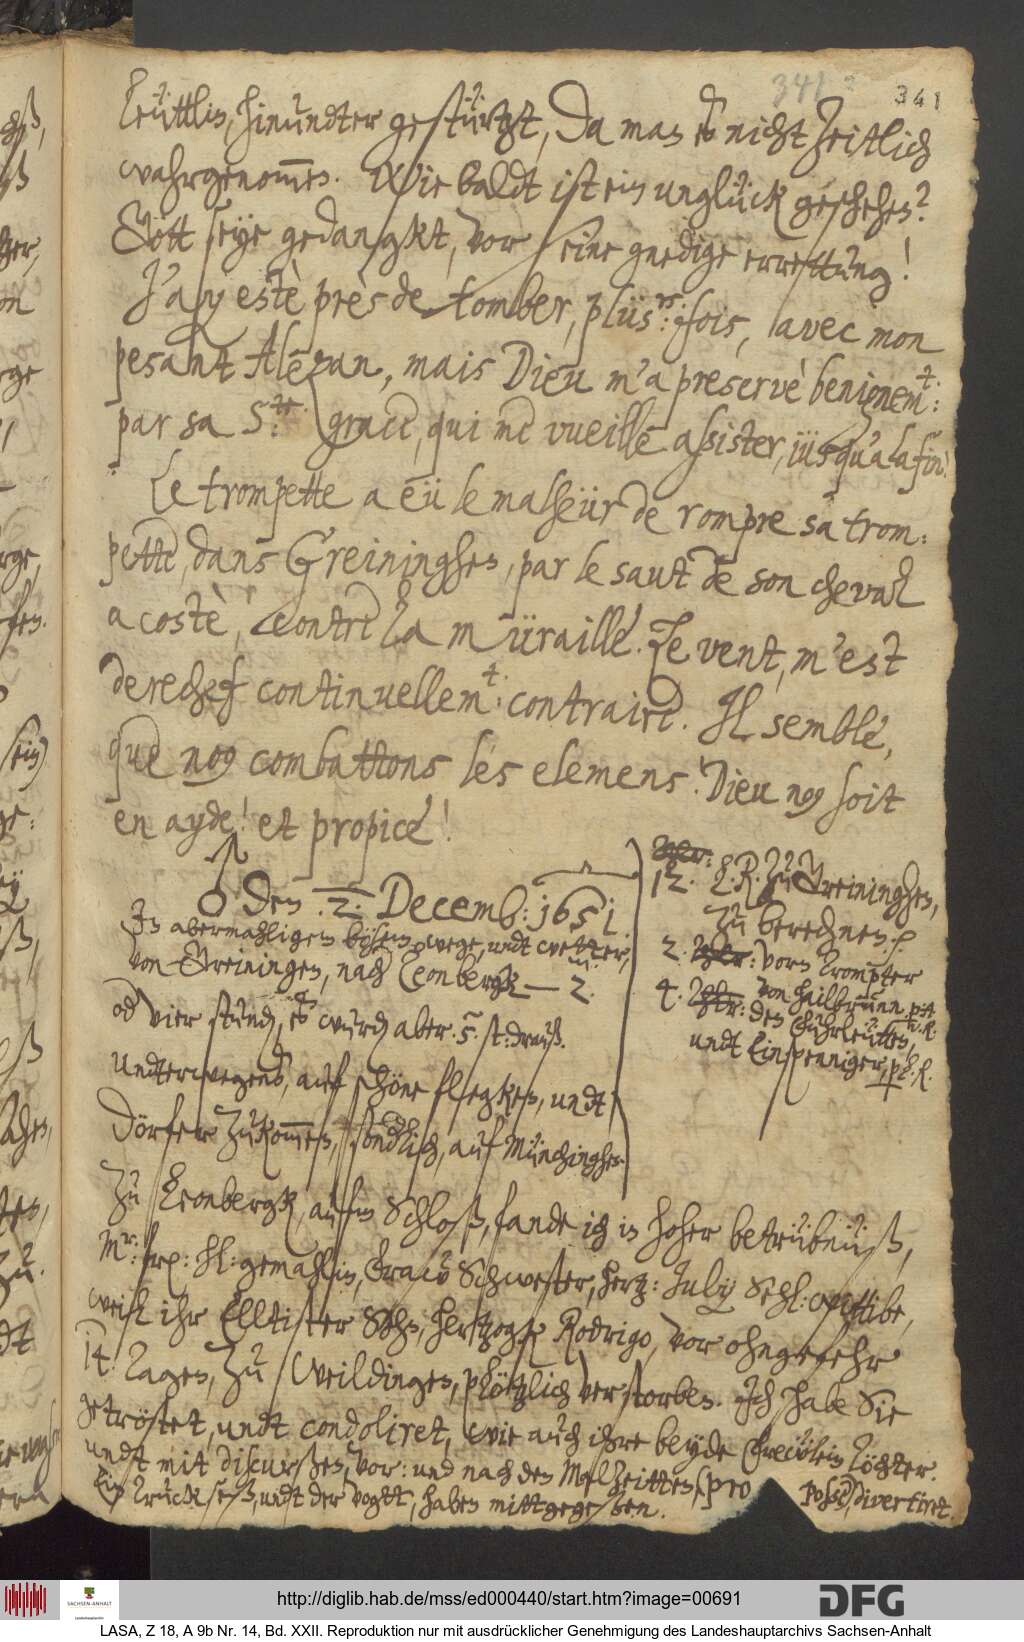 341 341
Leüttlin, hinundter gestürtzt, Da man es nicht Zeitlich
wahrgenom̅en. Wie baldt ist ein unglück geschehen?
Gott seye gedangkt, vor seine gnedige errettung!
J'ay estè près de tomber, plüs.rs fois, avec mon
pesant Alezan, mais Dieu m'a preservè benignem.t:
par sa S.te: grace, qui me vueille assister, iüsqu'a la fin!
Le trompette a eü le malheür de rompre sa trom:
pette, dans Greininghen, par le saut de son cheval
a costè, contre la müraille. Le vent, m'est
derechef continuellem.t: contraire. Il semble,
que nos combattons les elemens! Dieu nos soit
en ayde! et propice!
♂ Den .2. Decemb: 1651.
In abermahligem bösem wege, undt wetter,
von Greiningen, nach Leonbergk — 2.
od vier stund, es wurd aber .5. st: drauß.
undterwegens, auf schöne flegken, undt
Dörfer zukom̅en, sondlich, auf Münchinghen.
12. L. R. Zu Greininghen,
zu berechnen.
2. vorn Trompter
von Hailbrunn
4. den Führleütten,
undt Einspenniger,
Zu Leonbergk, aufm Schloß, fande ich in hoher betrübnüß,
Mr: frz: hl: gemahlin, Fraw Schwester, hertz: July Sehl: wittibe,
weil ihr Elltister Sohn, hertzogk Rodrigo, vor ohngefehr
14. Tagen, zu Weildingen, plötzlich verstorben. Ich habe Sie
getröstet, undt condoliret, wie auch ihre beyde Frewlein Töchter.
undt mit discurßen, vor: und nach den Mahlzeitten, pro posse, divertiret.
Ein Trucksess, undt der Vogtt, haben mittgegessen.
SACHSEN-ANHALT
Landeshauptarchiv
http://diglib.hab.de/mss/ed000440/start.htm?image=00691
DFG
LASA, Z 18, A 9b Nr. 14, Bd. XXII. Reproduktion nur mit ausdrücklicher Genehmigung des Landeshauptarchivs Sachsen-Anhalt